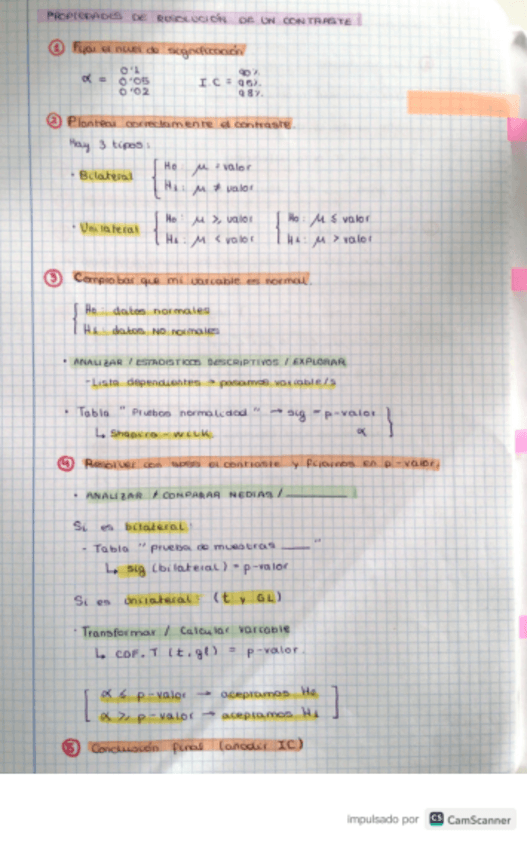 PROPIEDADES DE RESOLUCIÓN DE UN CONTRASTE
① Fijar el nivel de significación
α = 0'1 0'05 0'02 I.C = 90% 95% 98%
② Plantear correctamente el contraste.
Hay 3 tipos:
· Bilateral { H0: μ = valor
H1: μ ≠ valor
· Unilateral { H0: μ ≥ valor { H0: μ ≤ valor
H1: μ < valor H1: μ > valor
③ Comprobar que mi variable es normal.
{ H0: datos normales
H1: datos NO normales
· ANALIZAR / ESTADISTICOS DESCRIPTIVOS / EXPLORAR
- Lista dependientes → pasamos variable/s
· Tabla "Pruebas normalidad" → sig = p-valor }
↳ Shapiro-Wilk α
④ Resolver con spss el contraste y fijarnos en p-valor.
· ANALIZAR / COMPARAR MEDIAS / ______
Si es bilateral:
- Tabla "prueba de muestras ___"
↳ sig (bilateral) = p-valor
Si es unilateral: (t y GL)
· Transformar / Calcular variable
↳ CDF.T (t,gl) = p-valor.
[ α ≤ p-valor → aceptamos H0 ]
α ≥ p-valor → aceptamos H1
⑤ Conclusión final (añadir IC)
impulsado por CS CamScanner